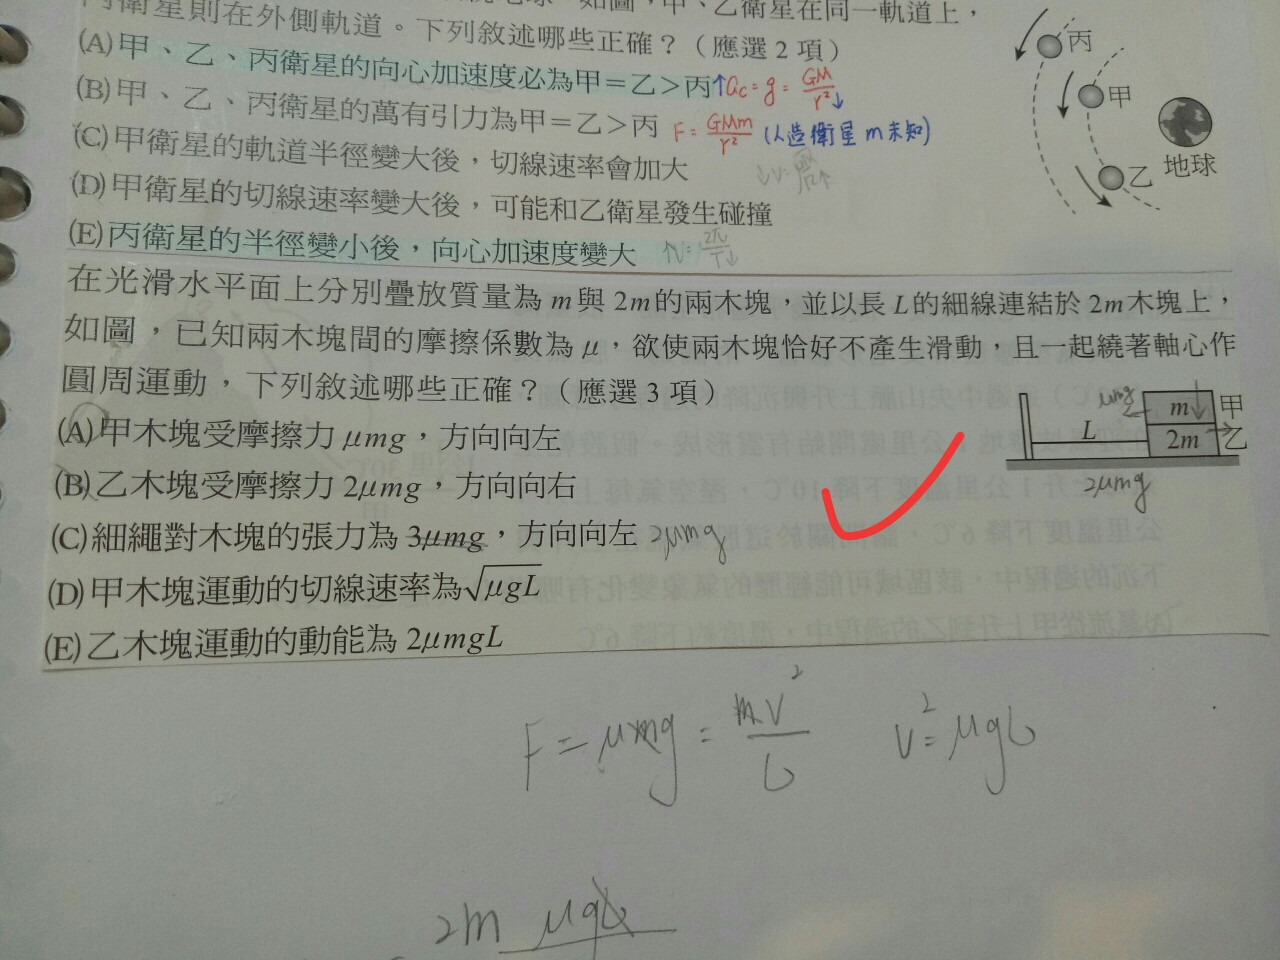 丙衛星則在外側軌道。下列敘述哪些正確?(應選2項)
(A)甲、乙、丙衛星的向心加速度必為甲=乙>丙 ↑ac=g=GM/r²↓
(B)甲、乙、丙衛星的萬有引力為甲=乙>丙 F=GMm/r² (人造衛星m未知)
(C)甲衛星的軌道半徑變大後,切線速率會加大
(D)甲衛星的切線速率變大後,可能和乙衛星發生碰撞
(E)丙衛星的半徑變小後,向心加速度變大
丙
甲
乙
地球
在光滑水平面上分別疊放質量為m與2m的兩木塊,並以長L的細線連結於2m木塊上,
如圖,已知兩木塊間的摩擦係數為μ,欲使兩木塊恰好不產生滑動,且一起繞著軸心作
圓周運動,下列敘述哪些正確?(應選3項)
(A)甲木塊受摩擦力μmg,方向向左
(B)乙木塊受摩擦力2μmg,方向向右
(C)細繩對木塊的張力為3μmg,方向向左 2μmg
(D)甲木塊運動的切線速率為√μgL
(E)乙木塊運動的動能為2μmgL
μmg
m 甲
L 2m 乙
2μmg
F=μmg=mv²/L v²=μgL
2m μgL